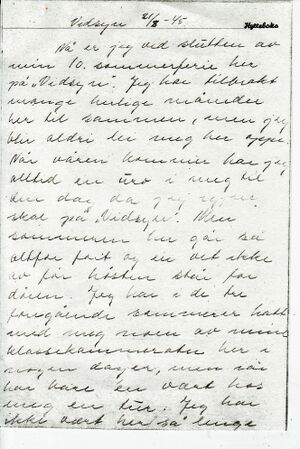 Vidsyn 21/8 -45
Hyttebok
Nå er jeg ved slutten av
min 10. sommerferie her
på „Vidsyn". Jeg har tilbrakt
mange herlige måneder
her til sammen, men jeg
blir aldri lei meg her oppe.
Når våren kommer har jeg
alltid en uro i meg til
den dag da jeg
skal på „Vidsyn". Men
sommeren her går så
altfor fort og en vet ikke
av før høsten står for
døren. Jeg har i de tre
foregående sommerer hatt
med meg noen av mine
klassekammerater her i
nogen dager, men i år
har bare en vært hos
meg en tur. Jeg har
ikke vært her så lenge